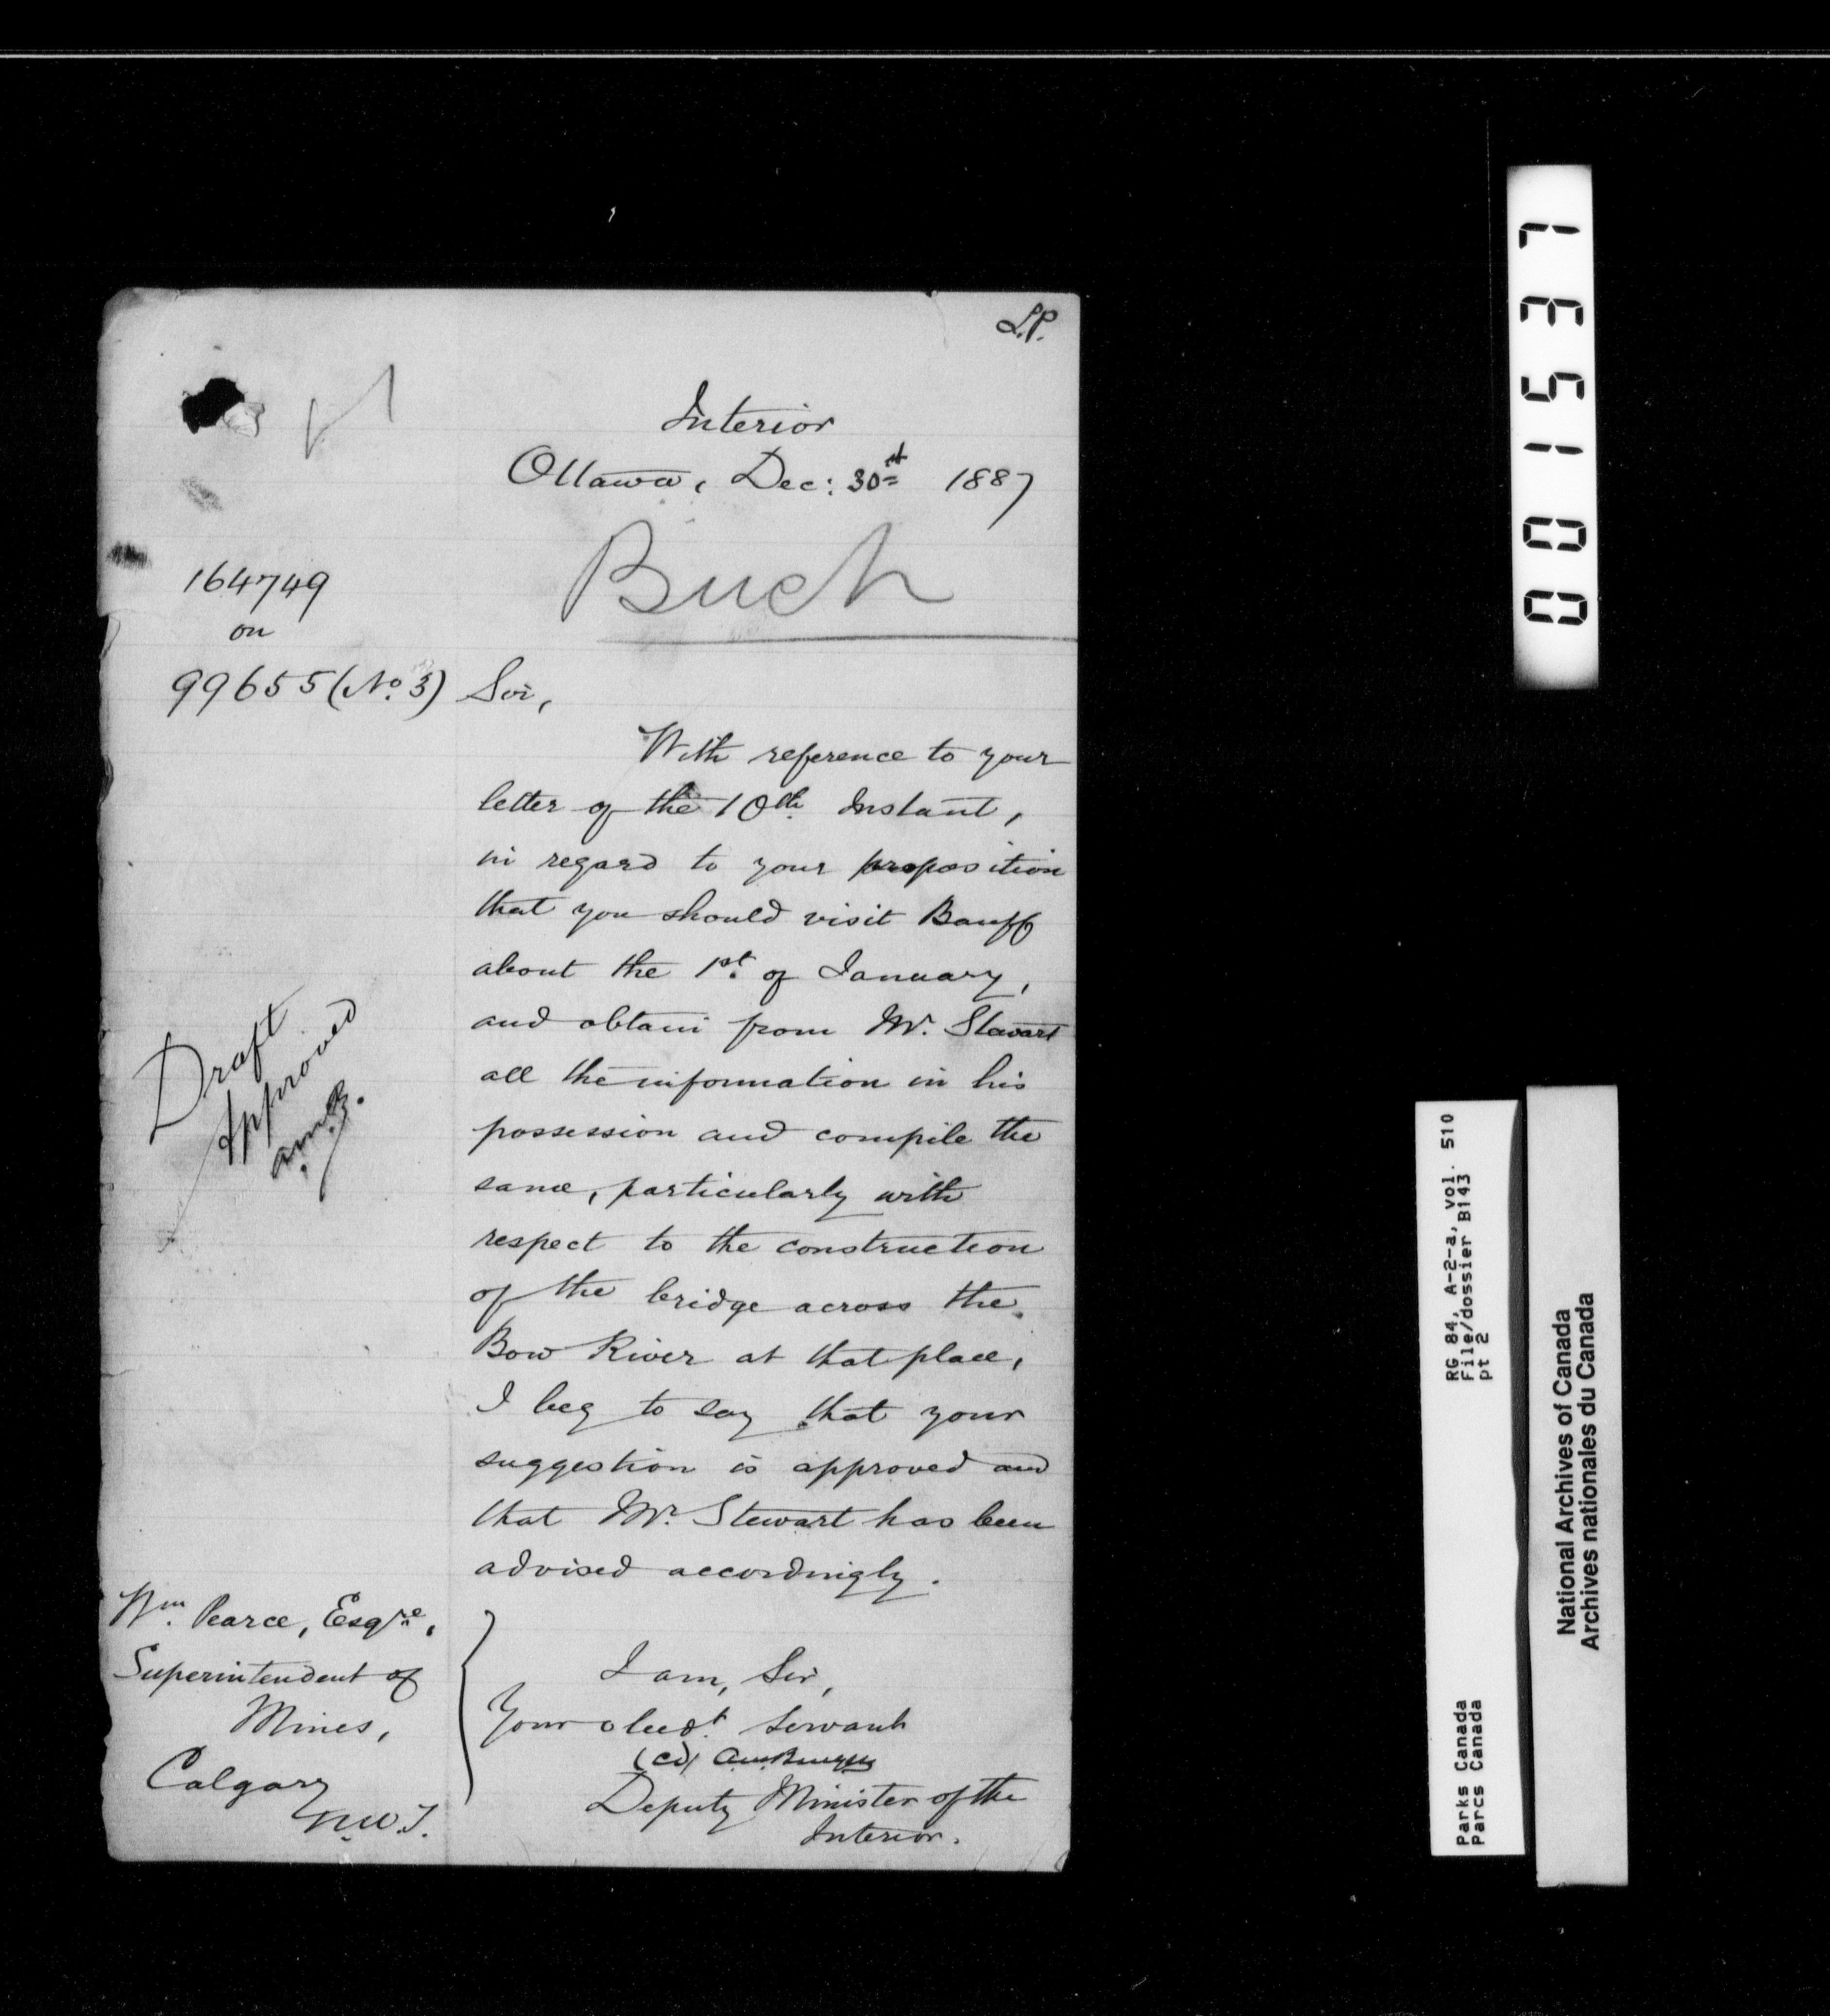 L.P.
Interior
Ottawa, Dec: 30st 1887
Buch
164749
on
99655 (No. 3)
Sir,
With reference to your
letter of the 10th Instant,
in regard to your proposition
that you should visit Banff
about the 1st. of January,
and obtain from Mr. Stewart
all the information in his
possession and compile the
same, particularly with
respect to the construction
of the bridge across the
Bow River at that place,
I beg to say that your
suggestion is approved and
that Mr. Stewart has been
advised accordingly.
Draft
Approved
A.M.B.
I am, Sir,
Your obedt. servant
A.M. Burgess
Deputy Minister of the
Interior.
Wm. Pearce, Esqre,
Superintendent of
Mines,
Calgary
N.W.T.
001537
RG 84, A-2-a, vol. 510
File/dossier B143
pt 2
Parks Canada
Parcs Canada
National Archives of Canada
Archives nationales du Canada